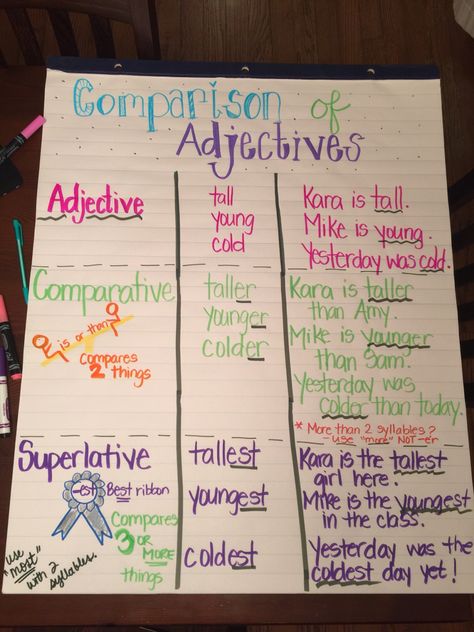 Comparison of
Adjectives
Adjective
tall
young
cold
Kara is tall.
Mike is young.
Yesterday was cold.
Comparative
is or than
Compares
2 things
taller
younger
colder
Kara is taller
than Amy.
Mike is younger
than Sam.
Yesterday was
colder than today.
* More than 2 syllables?
- use "more" NOT -er
Superlative
-est
Best ribbon
Compares
3 OR MORE
things
"use
most"
with 2
syllables.
tallest
youngest
coldest
Kara is the tallest
girl here.
Mike is the youngest
in the class.
Yesterday was the
coldest day yet!